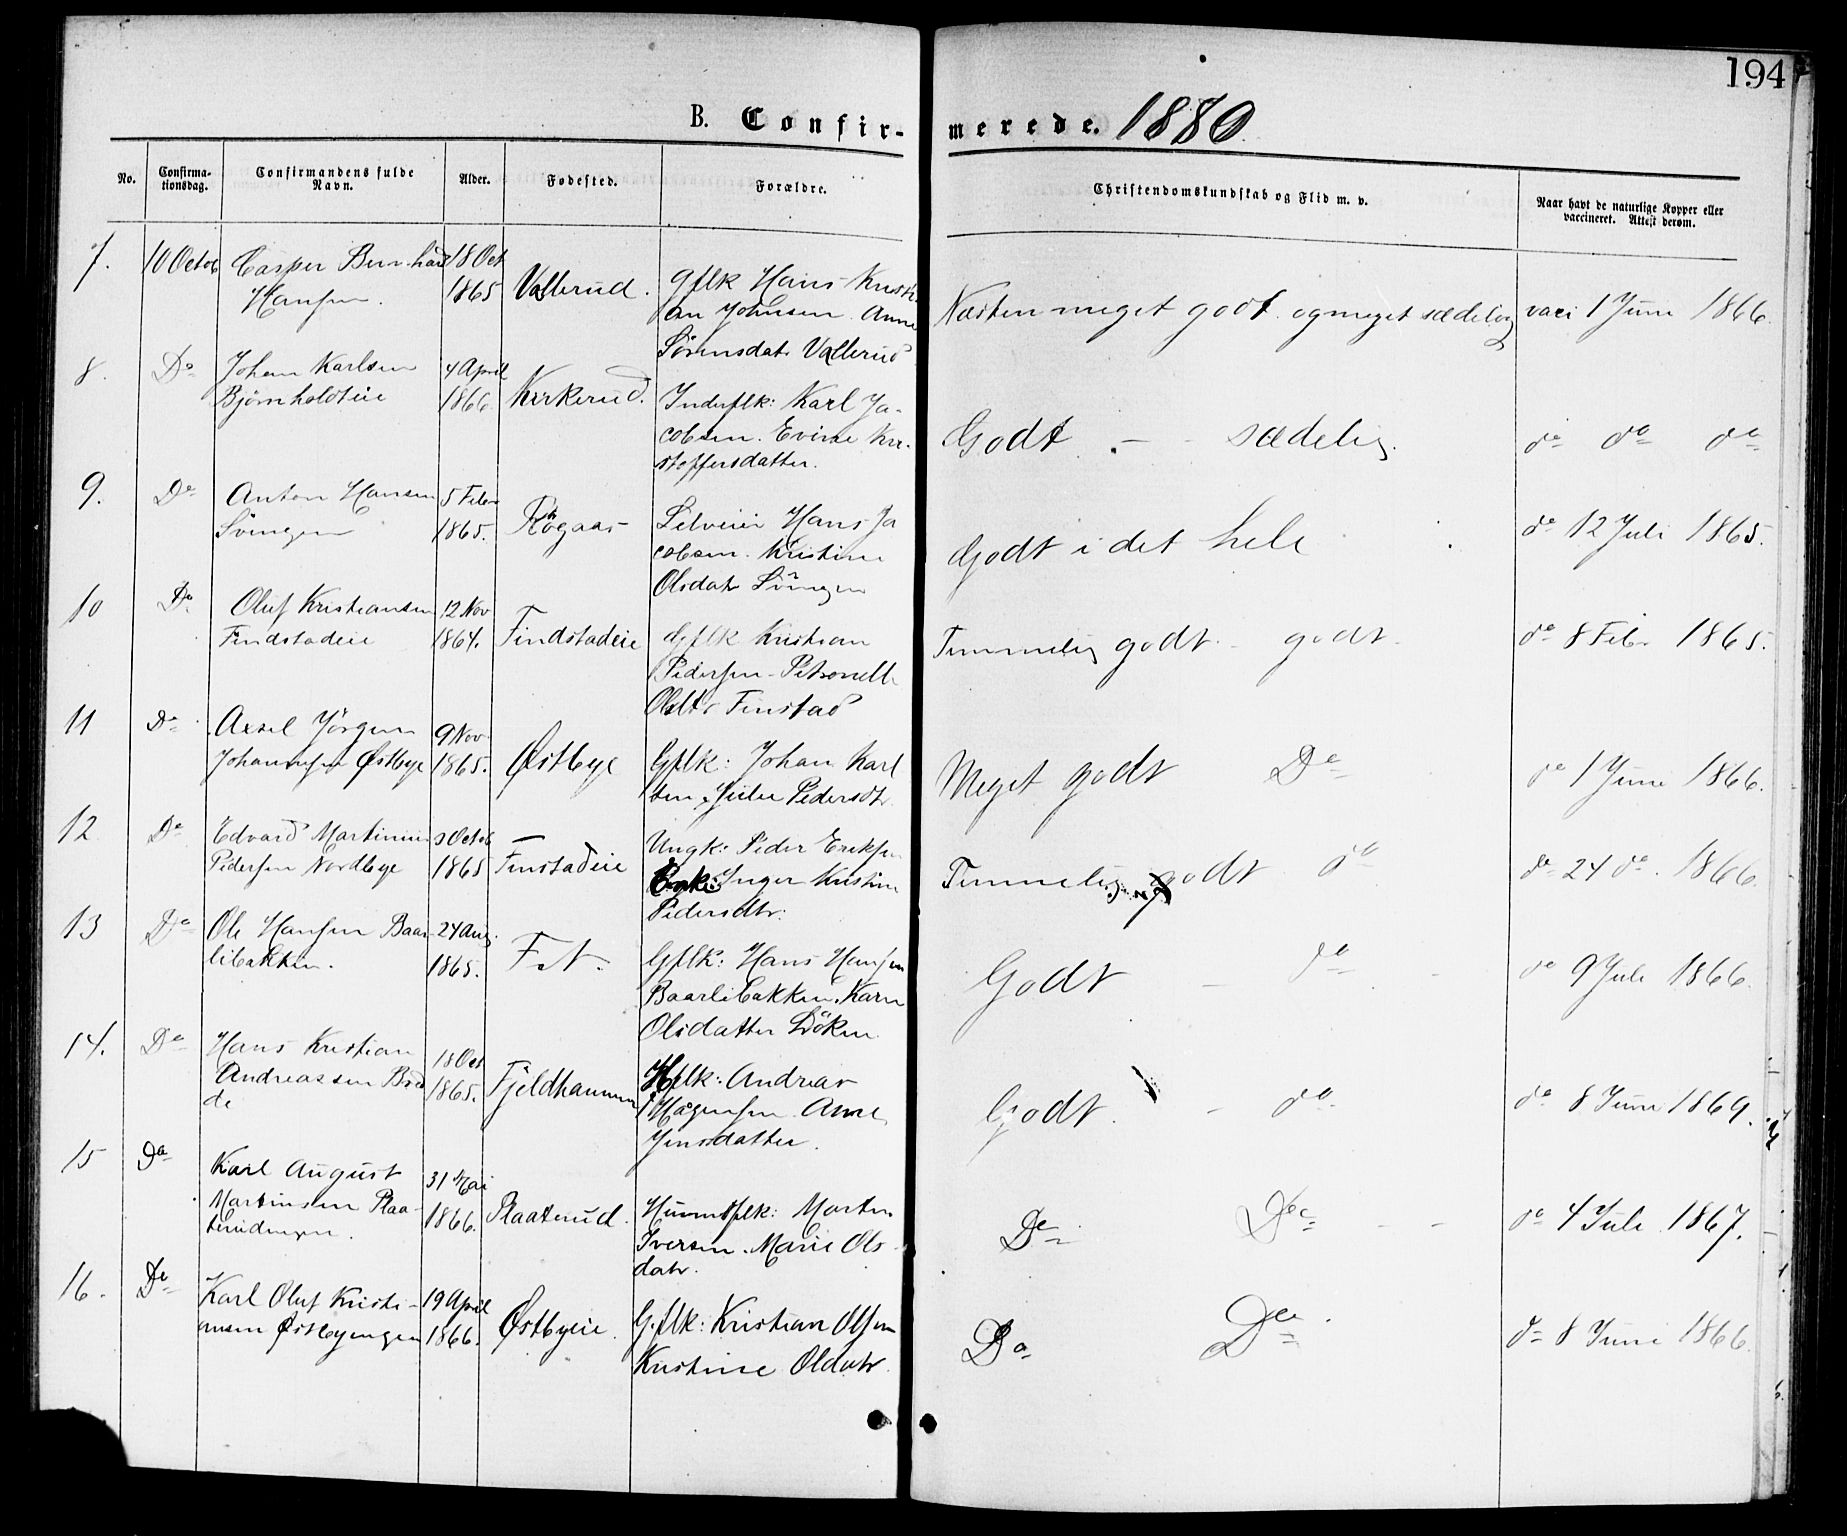 194
B. Confirmerede. 1880.
No. Confirmationsdag. Confirmandens fulde Navn. Alder. Fødested. Forældre. Christendomskundskab og Flid m. v. Naar havt de naturlige Kopper eller vaccineret. Attest derom.
7. 10 Octob Casper Bernhard 18 Oct
Hansen. 1865 Vallerud. gflk Hans Kristi-
an Johnsen. Anne Næsten meget godt. og meget sædelig vacc 1 Juni 1866.
Sørensdatr Vallerud
8. Do Johan Karlsen 4 April
Bjørnholdteie 1866. Kirkerud. Inderflk: Karl Ja-
cobsen. Evine Kri- Godt. - - sædelig. do do do
stoffersdatter.
9. Do Anton Hansen 5 Febr
Svingen 1865. Røgaas Hans Ja
cobsen. Kristine Godt i det hele do 12 Juli 1865.
Olsdatr Svingen
10 Do Oluf Kristiansen 12 Nov
Findstadeie 1864. Findstadeie Gflk Kristian
Pedersen - Petronelle Temmelig godt. - godt. do 8 Febr 1865.
Oldtr Finstad
11 Do Axsel Jörgen 9 Nov
Johannesen Østbye 1865. Østbye Gflk: Johan Karl
sen, Julie Pedersdtr. Meget godt Do do 1 Juni 1866.
12 Do Edvard Martinius Octob
Pedersen Nordbye 1865 Finstadeie Ungk: Peder Eriksen
Inger Kristine Temmelig godt do do 24 do. 1866.
Pedersdtr:
13 Do Ole Hansen Baar- 24 Aug.
libakken. 1865. Fet. Gflk: Hans Hansen
Baarlibakken. Karen Godt - do - do 9 Juli 1866.
Olsdatter Döken
14. Do Hans Kristian 18 Oct
Andreassen Bra 1865. Fjeldhammer flk: Andreas
de Hågensen. Anne Godt. - do do 8 Juni 1869.
Jensdatter.
15 Do Karl August 31 Mai
Martinsen Plaa- 1866. Plaaterud. Huusmflk: Martin
terudengen. Iversen. Marie Ols- Do Do - - do 4 Juli 1867.
datr.
16. Do Karl Oluf Kristi- 19 April
ansen Østbyengen 1866. Østbyeie. G.flk: Kristian Olsen
Kristine Oldatr. Do Do do 8 Juni 1866.